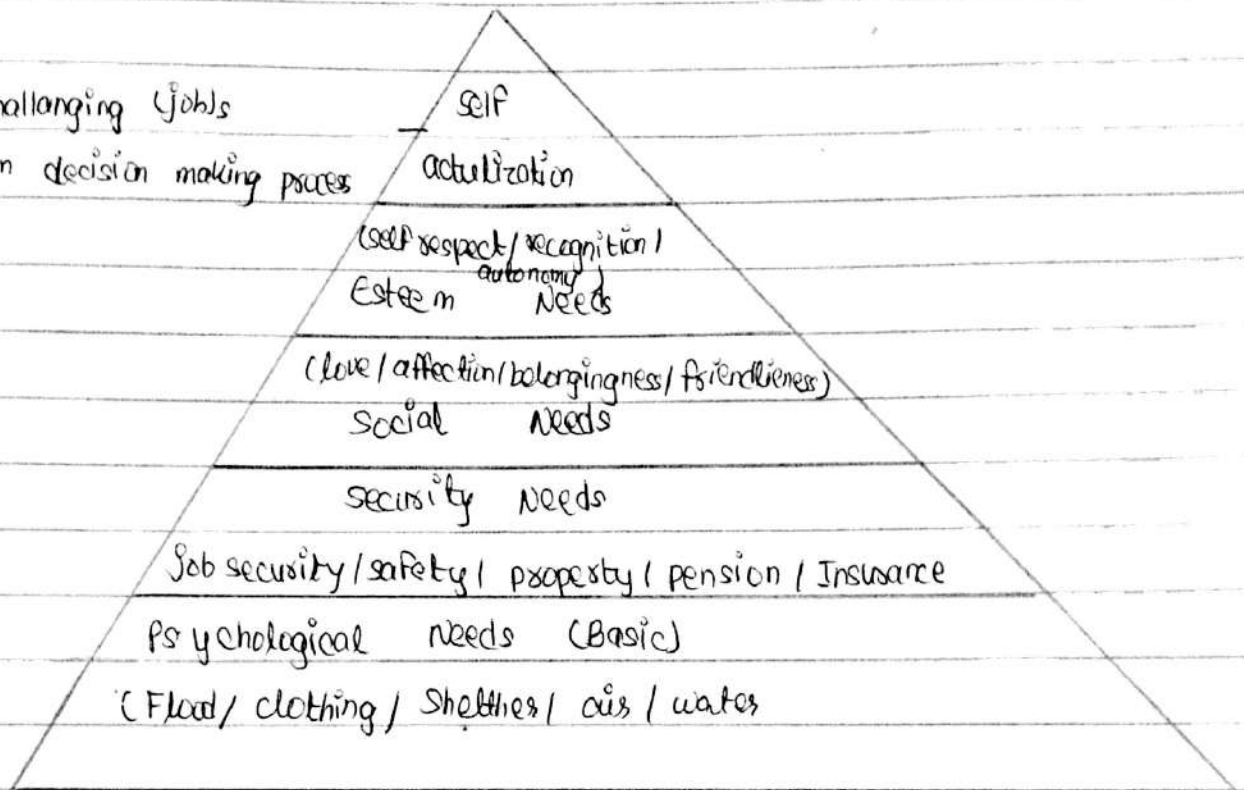 hallanging (job)s
self
n decision making process
actulization
(self respect/recognition/
autonomy)
Esteem Needs
(love/affection/belongingness/friendlieness)
Social Needs
security Needs
Job security/safety/ property/ pension / Insurance
Psychological Needs (Basic)
(Flood/ clothing/ Shelther/ air / water